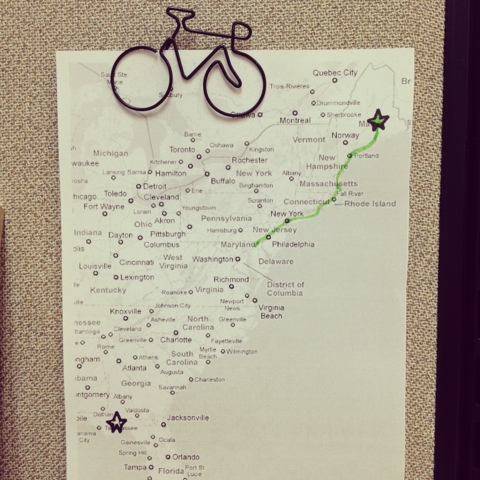 Quebec City
Trois-Rivieres
Drummondville
Sherbrooke
Montreal
Ottawa
Br
Sudbury
Vermont
Norway
Barrie
Oshawa
Kingston
Toronto
New
Hampshire
Portland
Michigan
waukee
Kitchener
Hamilton
Rochester
Lansing Sarnia
Buffalo
New York
Albany
Massachusetts
Detroit
Erie
Binghamton
Fall River
hicago
Toledo
Cleveland
Scranton
Connecticut
Rhode Island
Fort Wayne
Lorain
Youngstown
Akron
Pennsylvania
New York
Ohio
Harrisburg
New Jersey
Indiana
Dayton
Pittsburgh
Philadelphia
Columbus
Maryland
Cincinnati
West
Virginia
Washington
Delaware
Louisville
Lexington
District of
Columbia
Kentucky
Richmond
Roanoke
Virginia
Newport
News
Virginia
Beach
Knoxville
Johnson City
nessee
Asheville
North
Carolina
Greenville
Cleveland
Greenville
Charlotte
Fayetteville
Rome
South
Carolina
Myrtle
Beach
Wilmington
ngham
Athens
Atlanta
Augusta
Georgia
Charleston
Savannah
ntgomery
Albany
Dothan
Valdosta
Jacksonville
City
Gainesville
Ocala
Spring Hill
Orlando
Tampa
Florida
Port St
Lucie